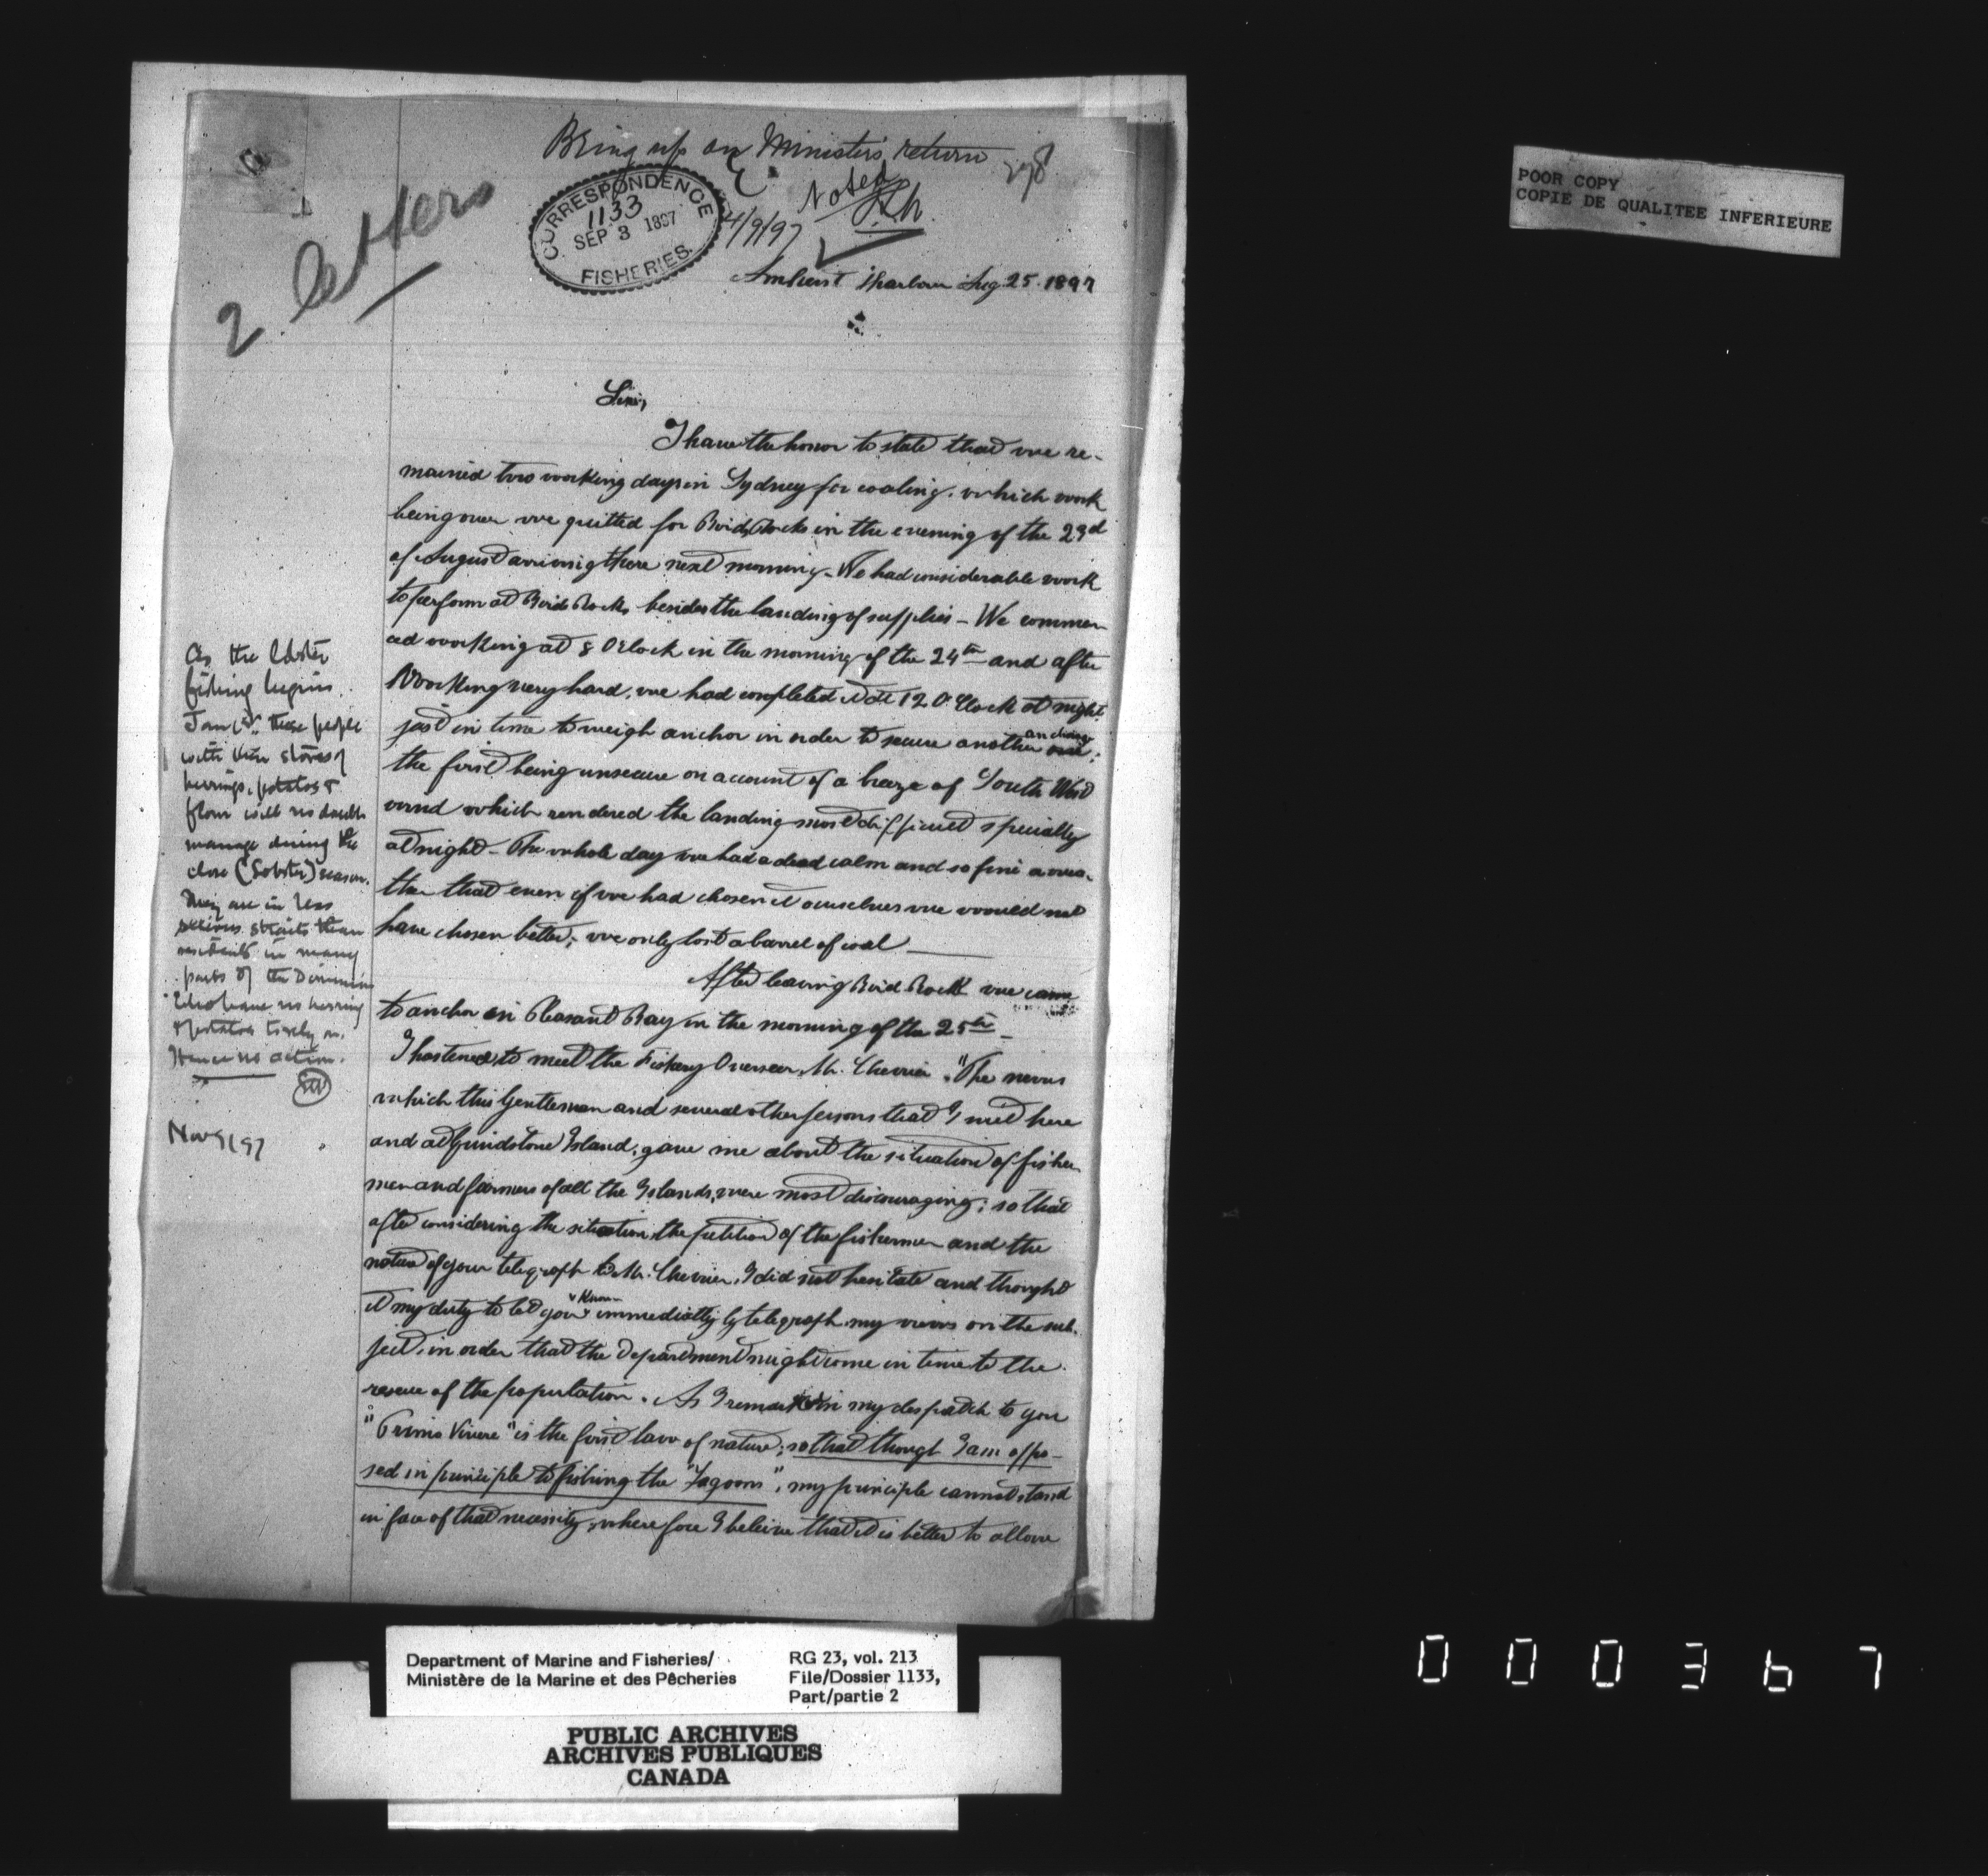 Bring up on Ministers return
298
2 letters
CORRESPONDENCE
1133
SEP 3 1897
FISHERIES.
4/9/97
Noted
Amherst Harbour Aug 25. 1897
Sir,
I have the honor to state that we re-
mained two working days in Sydney for coaling. which work
being over we quitted for Bird Rocks in the evening of the 23d
of August arriving there next morning. We had considerable work
to perform at Bird Rocks besides the landing of supplies - We commen
ced working at 8 O'clock in the morning of the 24th and after
Working very hard, we had completed it at 12 O'Clock at night
just in time to weigh anchor in order to secure another anchorage;
the first being unsecure on account of a breeze of South West
wind which rendered the landing most difficult specially
at night - The whole day we had a dead calm and so fine a wea-
ther that even if we had chosen it ourselves we would not
have chosen better; we only lost a barrel of coal
After leaving Bird Rock we came
to anchor in Pleasant Bay in the morning of the 25th -
I hastened to meet the Fishery Overseer, Mr. Chevrier. "The news
which this Gentleman and several other persons that I met here
and at Grindstone Island, gave me about the situation of fisher
men and farmers of all the Islands, were most discouraging; so that
after considering the situation, the petition of the fishermen and the
nature of your telegraph to Mr. Chevrier, I did not hesitate and thought
it my duty to let you know immediatly by telegraph my views on the sub-
ject, in order that the Department might come in time to the
rescue of the population. As I remarked in my despatch to you
"Primo Vivere" is the first law of nature; so that though I am oppo-
sed in principle to fishing the "Lagoons", my principle cannot stand
in face of that necessity, wherefore I beleive that it is better to allow
As the lobster
fishing begins
Jan 1st these people
with their stores of
herrings, potatoes &
flour will no doubt
manage during the
close (Lobster) season.
They are in less
serious straits than
residents in many
parts of the Dominion
who have no herring
& potatoes to rely on.
Hence no action.
Nov 9/97
POOR COPY
COPIE DE QUALITEE INFERIEURE
Department of Marine and Fisheries/
Ministère de la Marine et des Pêcheries
RG 23, vol. 213
File/Dossier 1133,
Part/partie 2
PUBLIC ARCHIVES
ARCHIVES PUBLIQUES
CANADA
000367